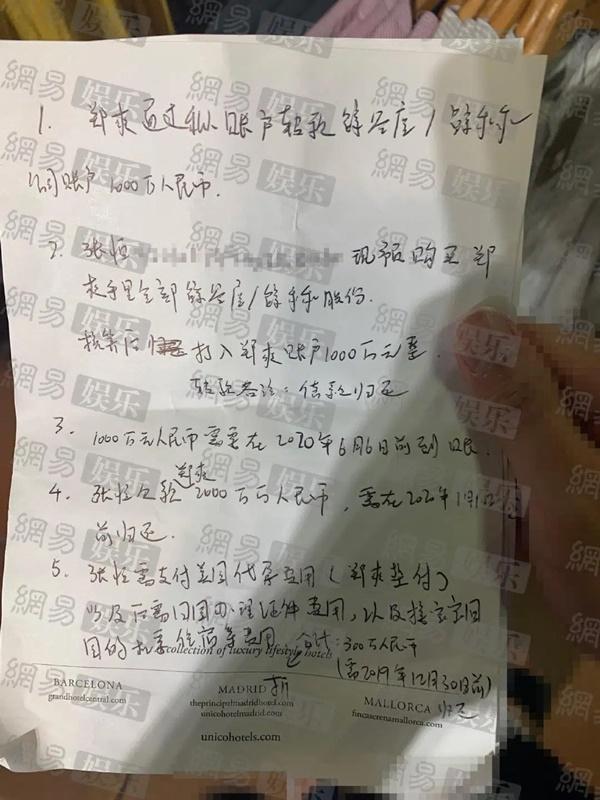 1. 郑爽通过私人账户转款 / 
公司账户 1000万人民币.
2. 张恒 现后购买郑
爽手里全部 / 股份.
核算后 打入郑爽账户1000万元整.
转款备注：借款归还
3. 1000万元人民币需要在2020年6月6日前到账.
郑爽
4. 张恒欠款 2000万人民币，需在202 年1月1日
前归还.
5. 张恒需支付美国代孕费用（郑爽垫付）
以及后需回国办理证件费用，以及接宝宝回
国的机票住宿等费用. 合计：300万人民币
collection of luxury lifestyle hotels
（需2019年12月30日前）
归还
BARCELONA
grandhotelcentral.com
MADRID
theprincipalmadridhotel.com
unicohotelmadrid.com
MALLORCA
fincaserenamallorca.com
unicohotels.com
網易娱乐